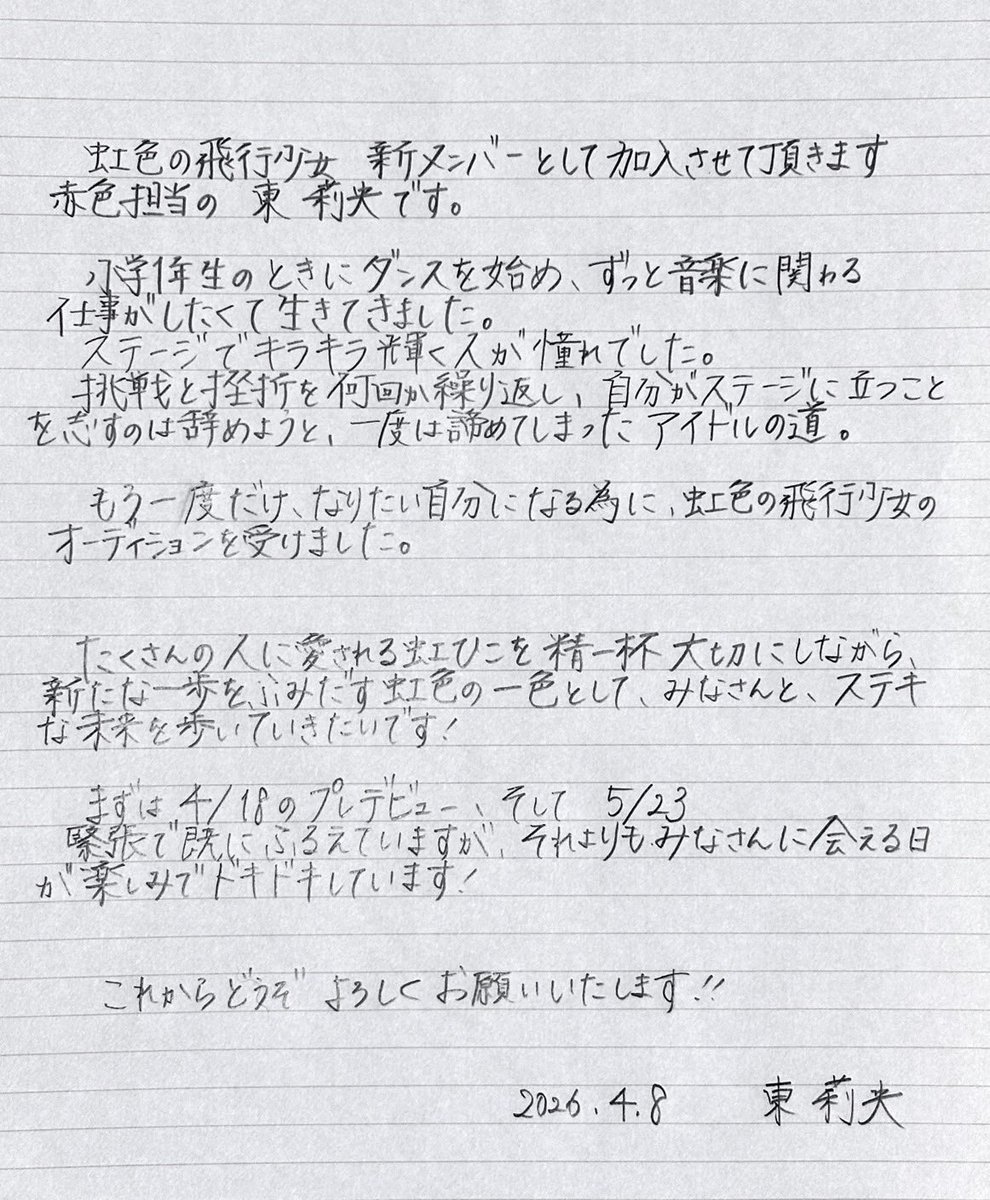 虹色の飛行少女 新メンバーとして加入させて頂きます
赤色担当の 東 莉央です。
小学1年生のときにダンスを始め、ずっと音楽に関わる
仕事がしたくて生きてきました。
ステージでキラキラ輝く人が憧れでした。
挑戦と挫折を何回か繰り返し、自分がステージに立つこと
を志すのは辞めようと、一度は諦めてしまったアイドルの道。
もう一度だけ、なりたい自分になる為に、虹色の飛行少女の
オーディションを受けました。
たくさんの人に愛される虹ひこを精一杯大切にしながら、
新たな一歩をふみだす虹色の一色として、みなさんと、ステキ
な未来を歩いていきたいです!
まずは 4/18のプレデビュー、そして 5/23
緊張で既にふるえていますが、それよりもみなさんに会える日
が楽しみでドキドキしています!
これからどうぞ よろしくお願いいたします!!
2026.4.8 東 莉央